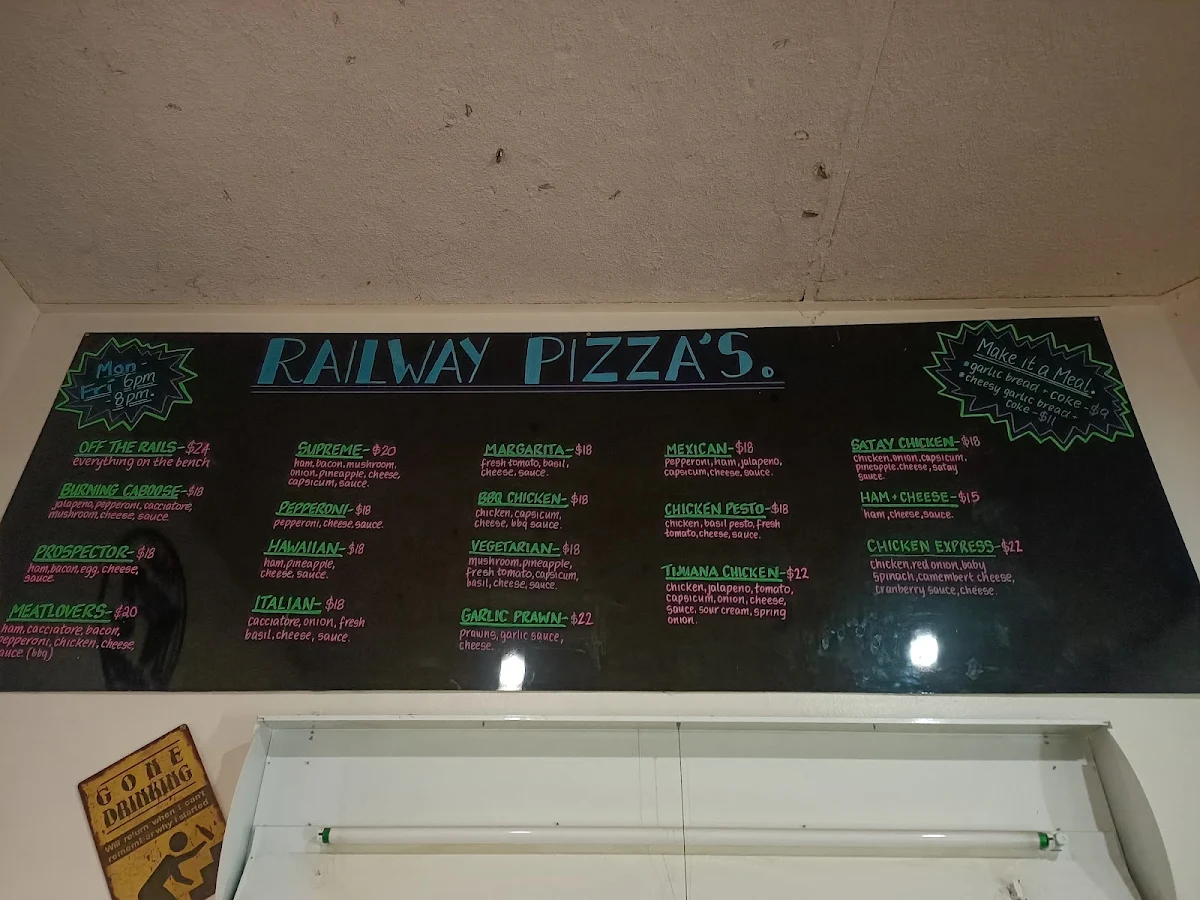 RAILWAY PIZZA'S.
Mon-
Fri 6pm
8pm.
Make it a Meal.
•garlic bread + coke-$9
•cheesy garlic bread-
coke-$11
OFF THE RAILS-$24
everything on the bench
BURNING CABOOSE-$18
jalapeno,pepperoni,cacciatore,
mushroom,cheese,sauce.
PROSPECTOR-$18
ham,bacon,egg,cheese,
sauce
MEATLOVERS-$20
ham,cacciatore,bacon,
pepperoni,chicken,cheese,
sauce (bbq)
SUPREME-$20
ham,bacon,mushroom,
onion,pineapple,cheese,
capsicum,sauce.
PEPPERONI-$18
pepperoni,cheese,sauce.
HAWAIIAN-$18
ham,pineapple,
cheese,sauce.
ITALIAN-$18
cacciatore,onion,fresh
basil,cheese,sauce.
MARGARITA-$18
fresh tomato,basil,
cheese,sauce.
BBQ CHICKEN-$18
chicken,capsicum,
cheese,bbq sauce.
VEGETARIAN-$18
mushroom,pineapple,
fresh tomato,capsicum,
basil,cheese,sauce.
GARLIC PRAWN-$22
prawns,garlic sauce,
cheese.
MEXICAN-$18
pepperoni,ham,jalapeno,
capsicum,cheese,sauce.
CHICKEN PESTO-$18
chicken,basil pesto,fresh
tomato,cheese,sauce.
TIJUANA CHICKEN-$22
chicken,jalapeno,tomato,
capsicum,onion,cheese,
sauce,sour cream,spring
onion.
SATAY CHICKEN-$18
chicken,onion,capsicum,
pineapple,cheese,satay
sauce.
HAM+CHEESE-$15
ham,cheese,sauce.
CHICKEN EXPRESS-$22
chicken,red onion,baby
spinach,camembert cheese,
cranberry sauce,cheese.
GONE
DRINKING
Will return when I can't
remember why I started